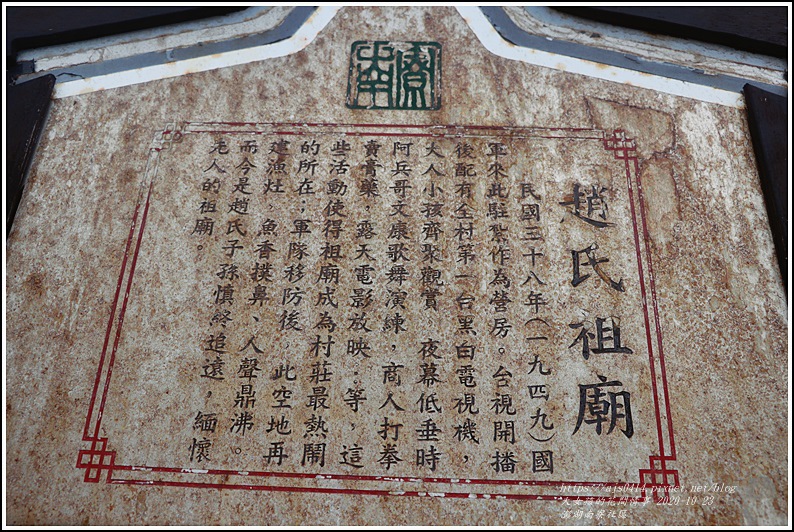 南寮
趙氏祖廟
民國三十八年(一九四九)國
軍來此駐紮作為營房。台視開播
後配有全村第一台黑白電視機，
大人小孩齊聚觀賞 夜幕低垂時
阿兵哥文康歌舞演練，商人打拳
賣膏藥 露天電影放映．等，這
些活動使得祖廟成為村莊最熱鬧
的所在；軍隊移防後，此空地再
建漁灶 魚香撲鼻、人聲鼎沸。
而今是趙氏子孫慎終追遠，緬懷
先人的祖廟。
2020-10-23
澎湖南寮社區